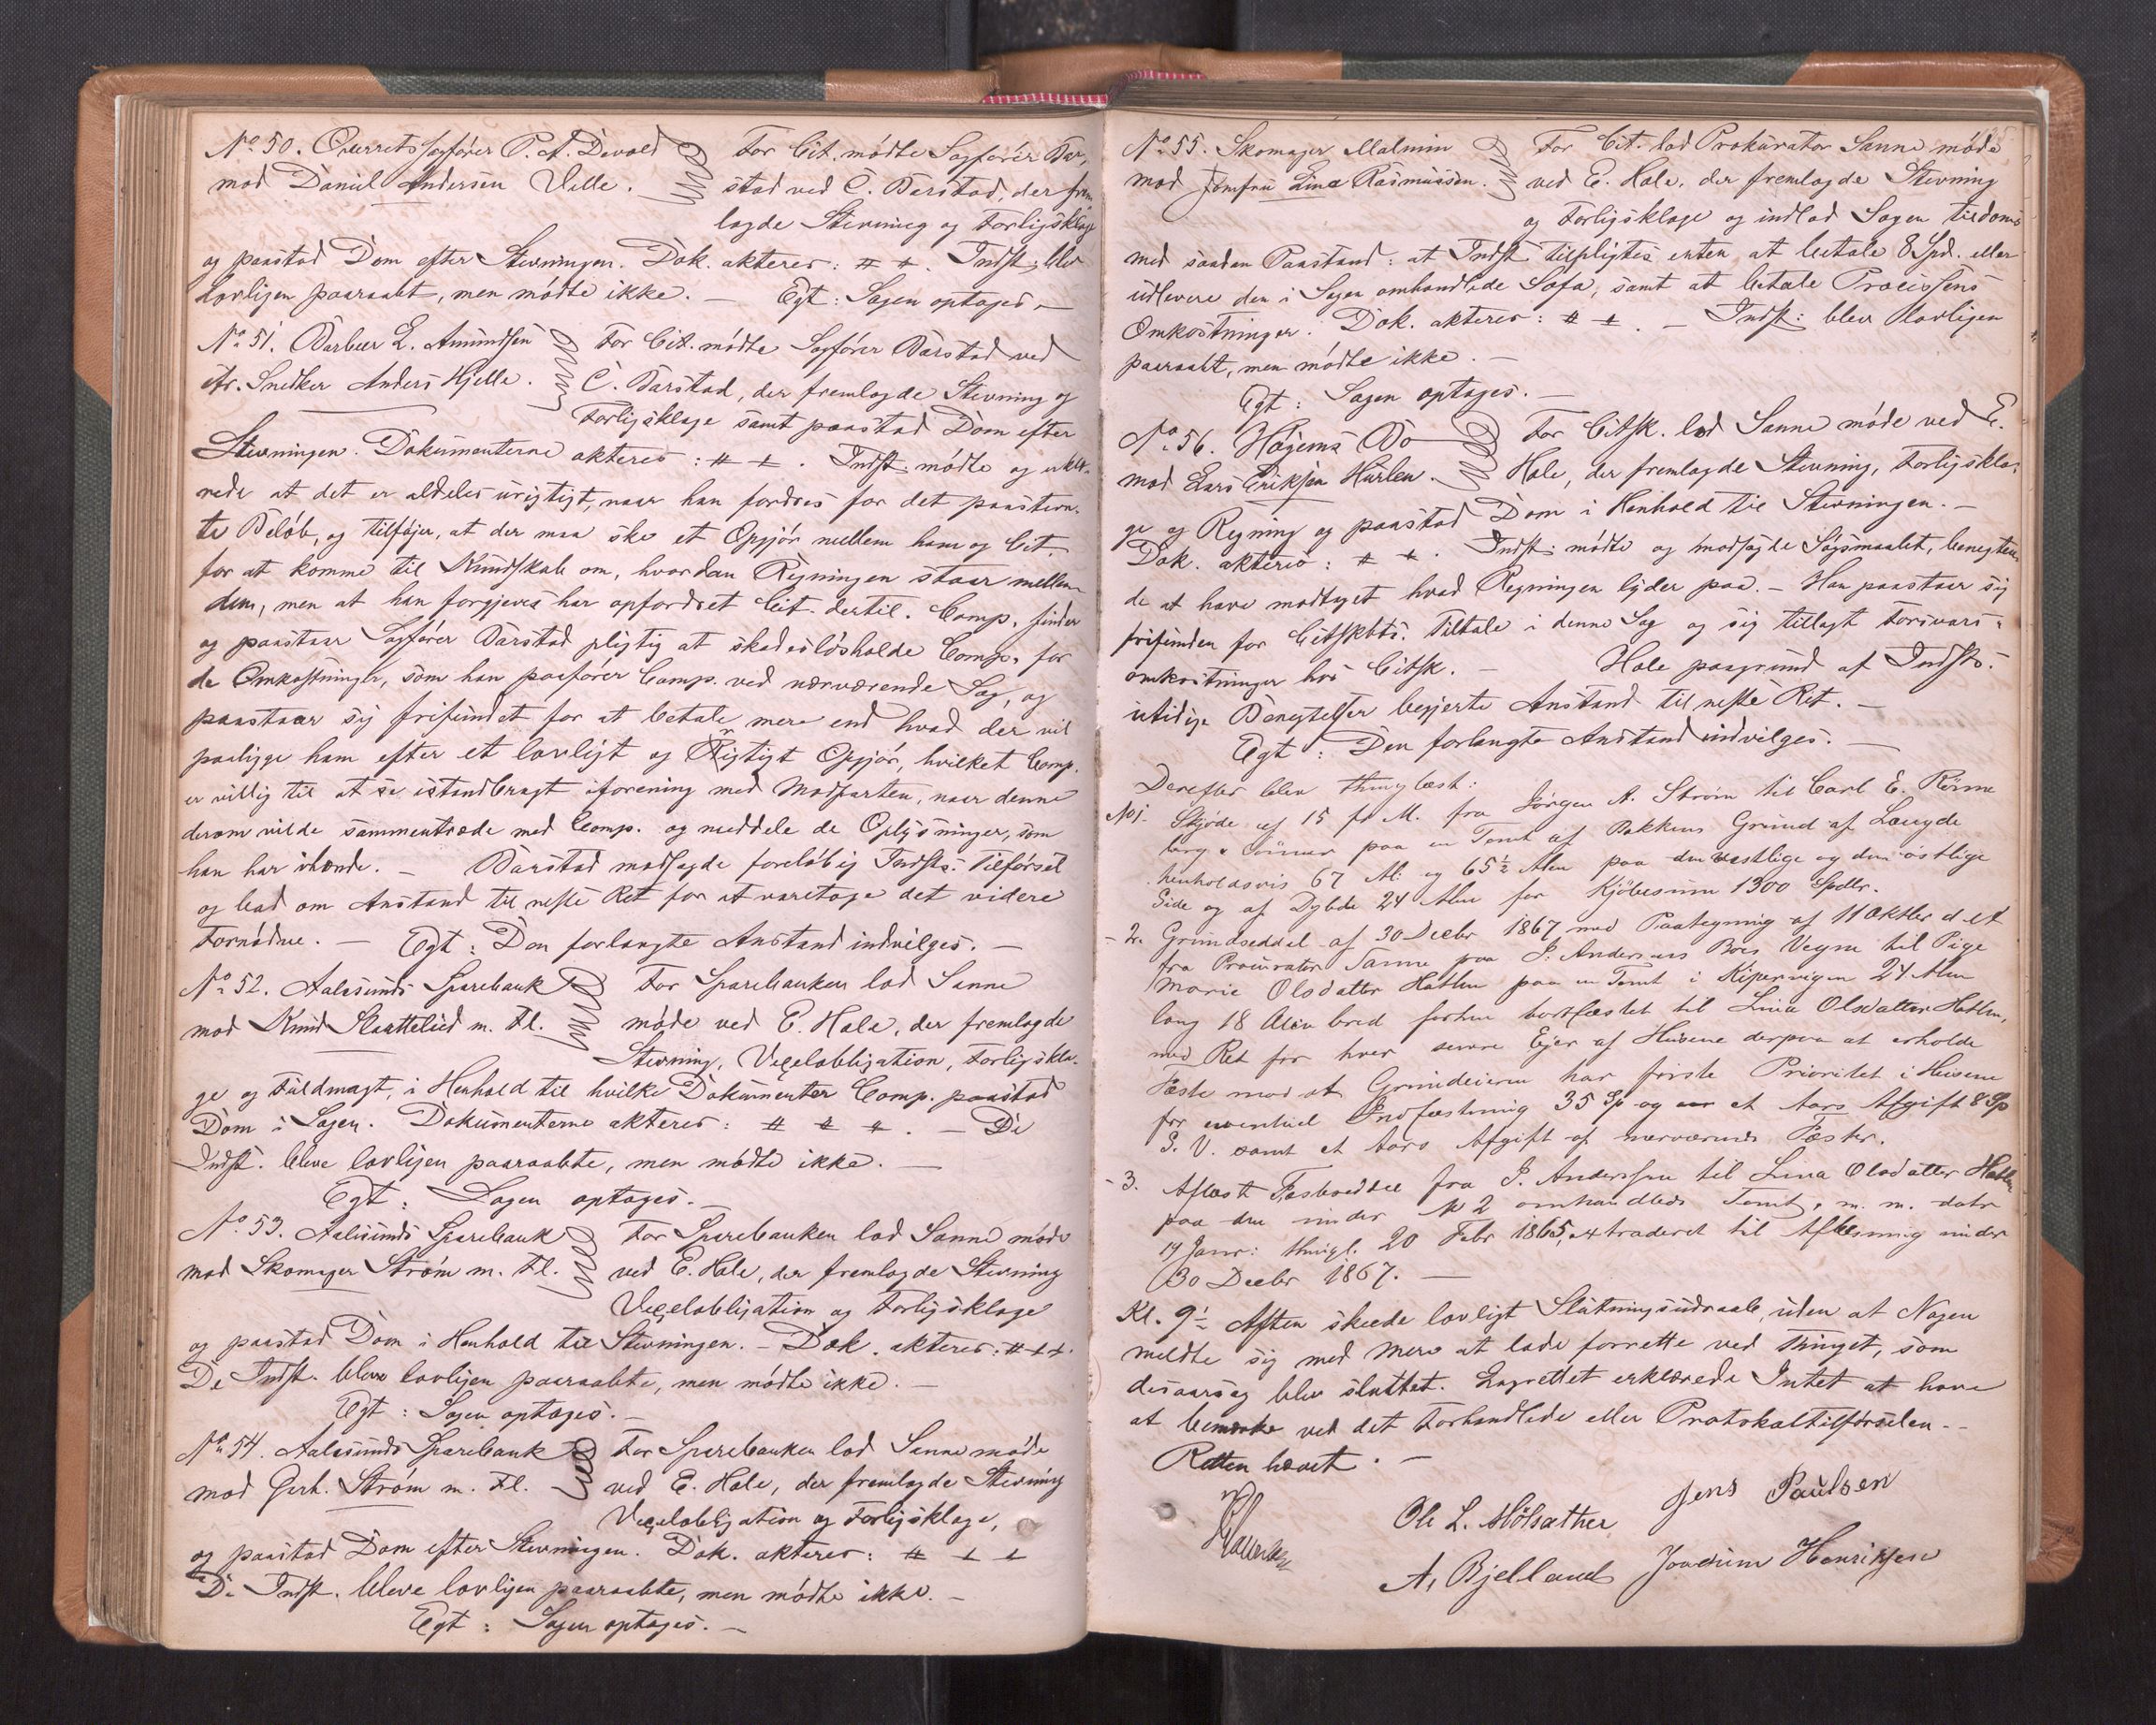 No 50. Overretssagfører P. A. Devold
mod Daniel Andersen Velle.
For Cit. mødte Sagfører Bar-
stad ved C. Barstad, der frem-
lagde Stevning og Forligsklage
og paastod Dom efter Stevningen. Dok. akteres: # +. Indst. blev
lovligen paaraabt, men mødte ikke. — Egt: Sagen optages. —
No 51. Barbeer L. Amundsen
ctr. Snedker Anders Hjelle.
For Cit. mødte Sagfører Barstad ved
C. Barstad, der fremlagde Stevning og
Forligsklage samt paastod Dom efter
Stevningen. Dokumenterne akteres: # +. Indst: mødte og erklæ-
rede at det er aldeles urigtigt, naar han fordres for det paastevn-
te Beløb, og tilføjer, at der maa ske et Opgjør mellem ham og Cit.
for at komme til Kundskab om, hvordan Regningen staar mellem
dem, men at han forgjeves har opfordret Cit. dertil. Comp. finder
og paastaar Sagfører Barstad pligtig at skadesløsholde Comp. for
de Omkostninger, som han paafører Comp. ved nærværende Sag, og
paastaar sig frifundet for at betale mere end hvad der vil
paaligge ham efter et lovligt og Rigtigt Opgjør, hvilket Comp.
er villig til at se istandbragt iforening med Modparten, naar denne
derom vilde sammentræde med Comp. og meddele de Oplysninger, som
han har ihænde. — Barstad modsagde foreløbig Indsts. Tilførsel
og bad om Anstand til neste Ret for at varetage det videre
Fornødne. — Egt: Den forlangte Anstand indvilges. —
No 52. Aalesunds Sparebank
mod Knud Slaattelied m. Fl.
For Sparebanken lod Sanne
møde ved E. Hole, der fremlagde
Stevning, Vexelobligation, Forligskla-
ge og Fuldmagt, i Henhold til hvilke Dokumenter Comp. paastod
Dom i Sagen. Dokumenterne akteres: # # # — De
Indst. bleve lovligen paaraabte, men mødte ikke. —
Egt: Sagen optages. —
No 53. Aalesunds Sparebank
mod Skomager Strøm m. Fl.
For Sparebanken lod Sanne møde
ved E. Hole, der fremlagde Stevning
Vexelobligation og Forligsklage
og paastod Dom i Henhold til Stevningen. — Dok. akteres: # + +.
De Indst. bleve lovligen paaraabte, men mødte ikke. —
Egt: Sagen optages. —
No 54. Aalesunds Sparebank
mod Gerh. Strøm m. Fl.
For Sparebanken lod Sanne møde
ved E. Hole, der fremlagde Stevning
Vexelobligation og Forligsklage,
og paastod Dom efter Stevningen. Dok. akteres: # + +
De Indst. bleve lovligen paaraabte, men mødte ikke. —
Egt: Sagen optages. —
No 55. Skomager Malmin
mod Jomfru Lina Rasmussen.
For Cit. lod Prokurator Sanne møde
ved E. Hole, der fremlagde Stevning
og Forligsklage og indlod Sagen tildoms
med saadan Paastand: at Indst. tilpligtes enten at betale 8 Spd. eller
udlevere den i Sagen omhandlede Sofa, samt at betale Processens
Omkostninger. Dok. akteres: # +. — Indst: blev lovligen
paaraabt, men mødte ikke. —
Egt: Sagen optages. —
No 56. Hagems Bo
mod Lars Eriksen Hurlen.
For Citsk. lod Sanne møde ved E.
Hole, der fremlagde Stevning, Forligskla-
ge og Regning og paastod Dom i Henhold til Stevningen. —
Dok. akteres: # +. Indst: mødte og modsagde Søgsmaalet, benegten-
de at have modtaget hvad Regningen lyder paa. — Han paastaar sig
frifunden for Citskbts. Tiltale i denne Sag og sig tillagt Forsvars-
omkostninger hos Citsk. — Hole paagrund af Indsts.
utidige Benegtelser begjerte Anstand til neste Ret. —
Egt: Den forlangte Anstand indvilges. —
Derefter blev thinglæst:
No 1. Skjøde af 15 ds M. fra Jørgen A. Strøm til Carl E. Rönne
berg & Sönner paa en Tomt af Bakkens Grund af Længde
henholdsvis 67 Al: og 65½ Alen paa den vestlige og den østlige
Side og af Dybde 24 Alen for Kjøbesum 1300 Spdlr.
- 2. Grundseddel af 30 Decbr 1867 med Paategning af 11 Oktbr d. A
fra Procurator Sanne paa J. Andersens Boes Vegne til Pige
Marie Olsdatter Hatlen paa en Tomt i Kipervigen 24 Alen
lang 18 Alen bred forhen bortfæstet til Lina Olsdatter Hatlen,
med Ret for hver senere Ejer af Husene derpaa at erholde
Fæste mod at Grundeieren har første Prioritet i Husene
for eventuel Indfæstning 35 Sp og et Aars Afgift 8 Sp
S. V. samt et Aars Afgift af nærværende Fæster.
- 3. Aflæst Fæsteseddel fra J. Anderssen til Lina Olsdatter Hatlen
paa den under No 2 omhandlede Tomt, m. m. datr
19 Janr: thingl. 20 Febr 1865, extraderet til Aflæsning under
30 Decbr 1867. —
Kl. 9½ Aften skede lovligt Slutningsudraab, uden at Nogen
meldte sig med Mere at lade forrette ved Thinget, som
desaarsag blev sluttet. Lagrettet erklærede Intet at have
at bemærke ved det Forhandlede eller Protokoltilførselen. —
Retten hævet. —
Ole L. Molsæther Jens Paulsen
A. Bjelland Joachim Henriksen